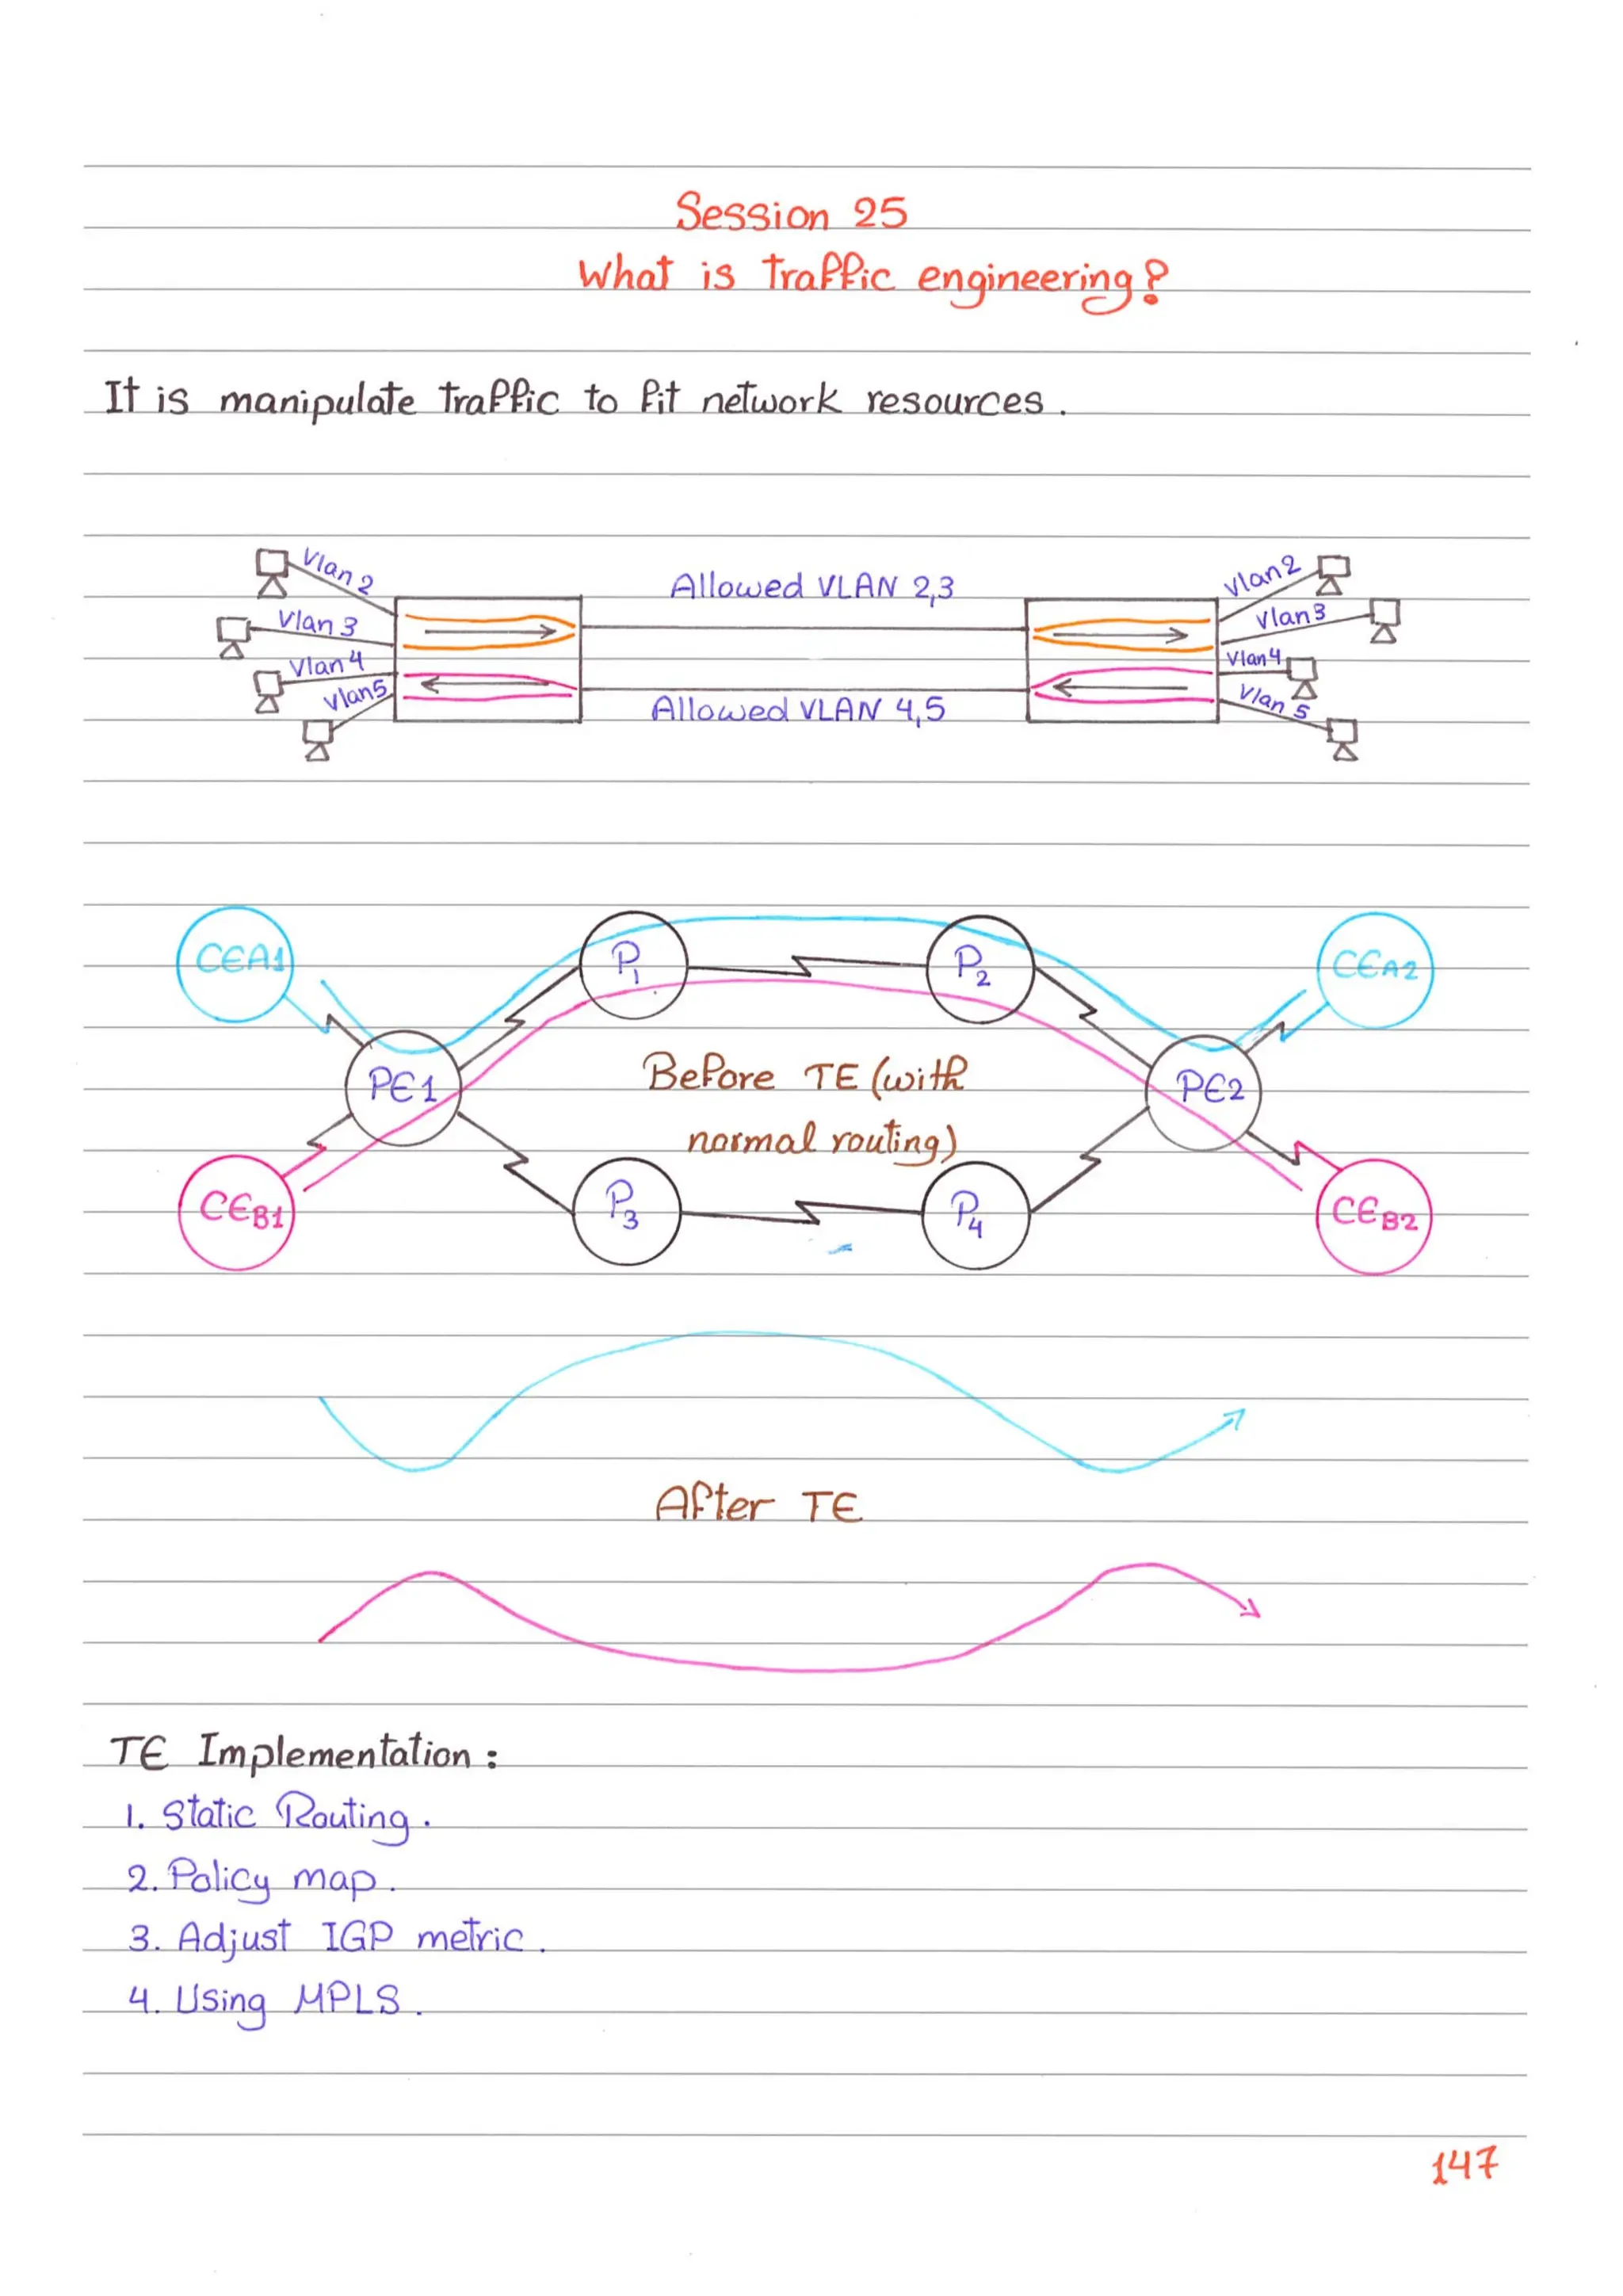 Session 25
What is traffic engineering?
It is manipulate traffic to fit network resources.
Vlan 2
Vlan 3
Vlan 4
Vlan5
Allowed VLAN 2,3
Allowed VLAN 4,5
Vlan2
Vlan3
Vlan4
Vlan 5
CEA1
P1
P2
CEA2
PE1
Before TE (with
normal routing)
PE2
CEB1
P3
P4
CEB2
After TE
TE Implementation :
1. Static Routing.
2. Policy map.
3. Adjust IGP metric.
4. Using MPLS.
147